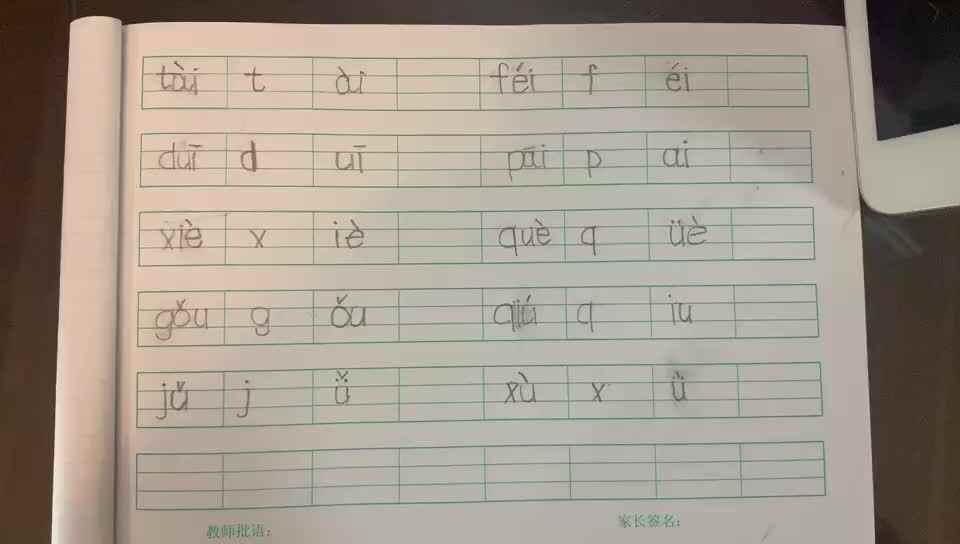 tài t ài féi f éi
duī d uī pāi p ai
xiè x iè què q üè
gǒu g ǒu qiú q iu
jǔ j ǚ xù x ǜ
教师批语： 家长签名：